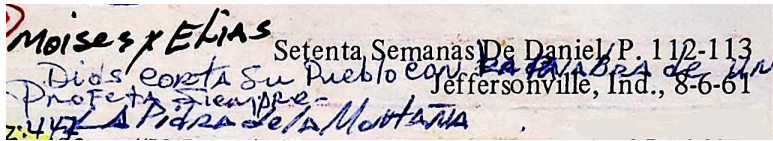 Moises y Elias
Setenta Semanas De Daniel, P. 112-113
Dios corta Su Pueblo con La Palabra de un
Jeffersonville, Ind., 8-6-61
Profeta siempre-
2:447 La Piedra de la Montaña